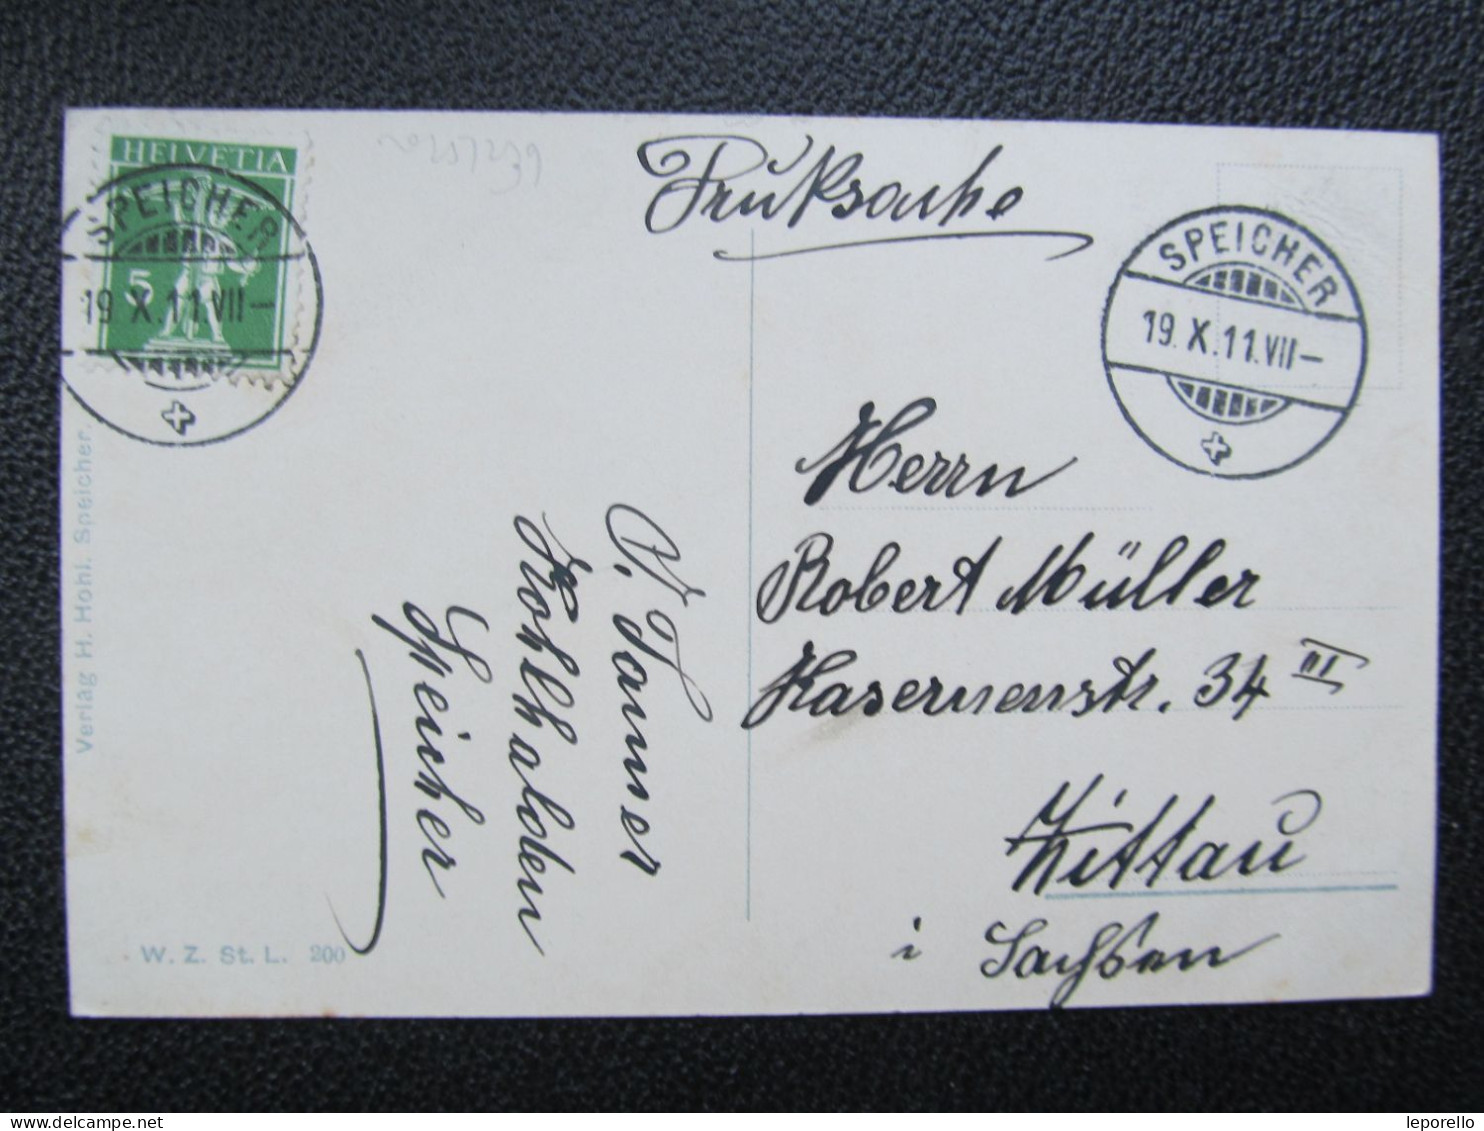 HELVETIA
5
SPEICHER
19. X. 11. VII –
Verlag H. Hohl. Speicher.
W. Z. St. L. 200
Druksache
SPEICHER
19. X. 11. VII –
Herrn
Robert Müller
Kasernenstr. 34 III
Zittau
i Sachsen
V. Tanner
Kohlhalden
Speicher
leporello